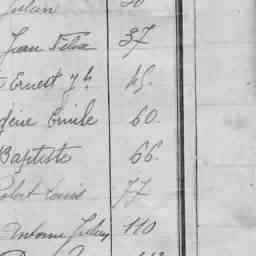 Julien 30
Jean Felix 37
Ernest 45.
Emile 60.
Baptiste 66.
Robert Louis 77
Antoine 110